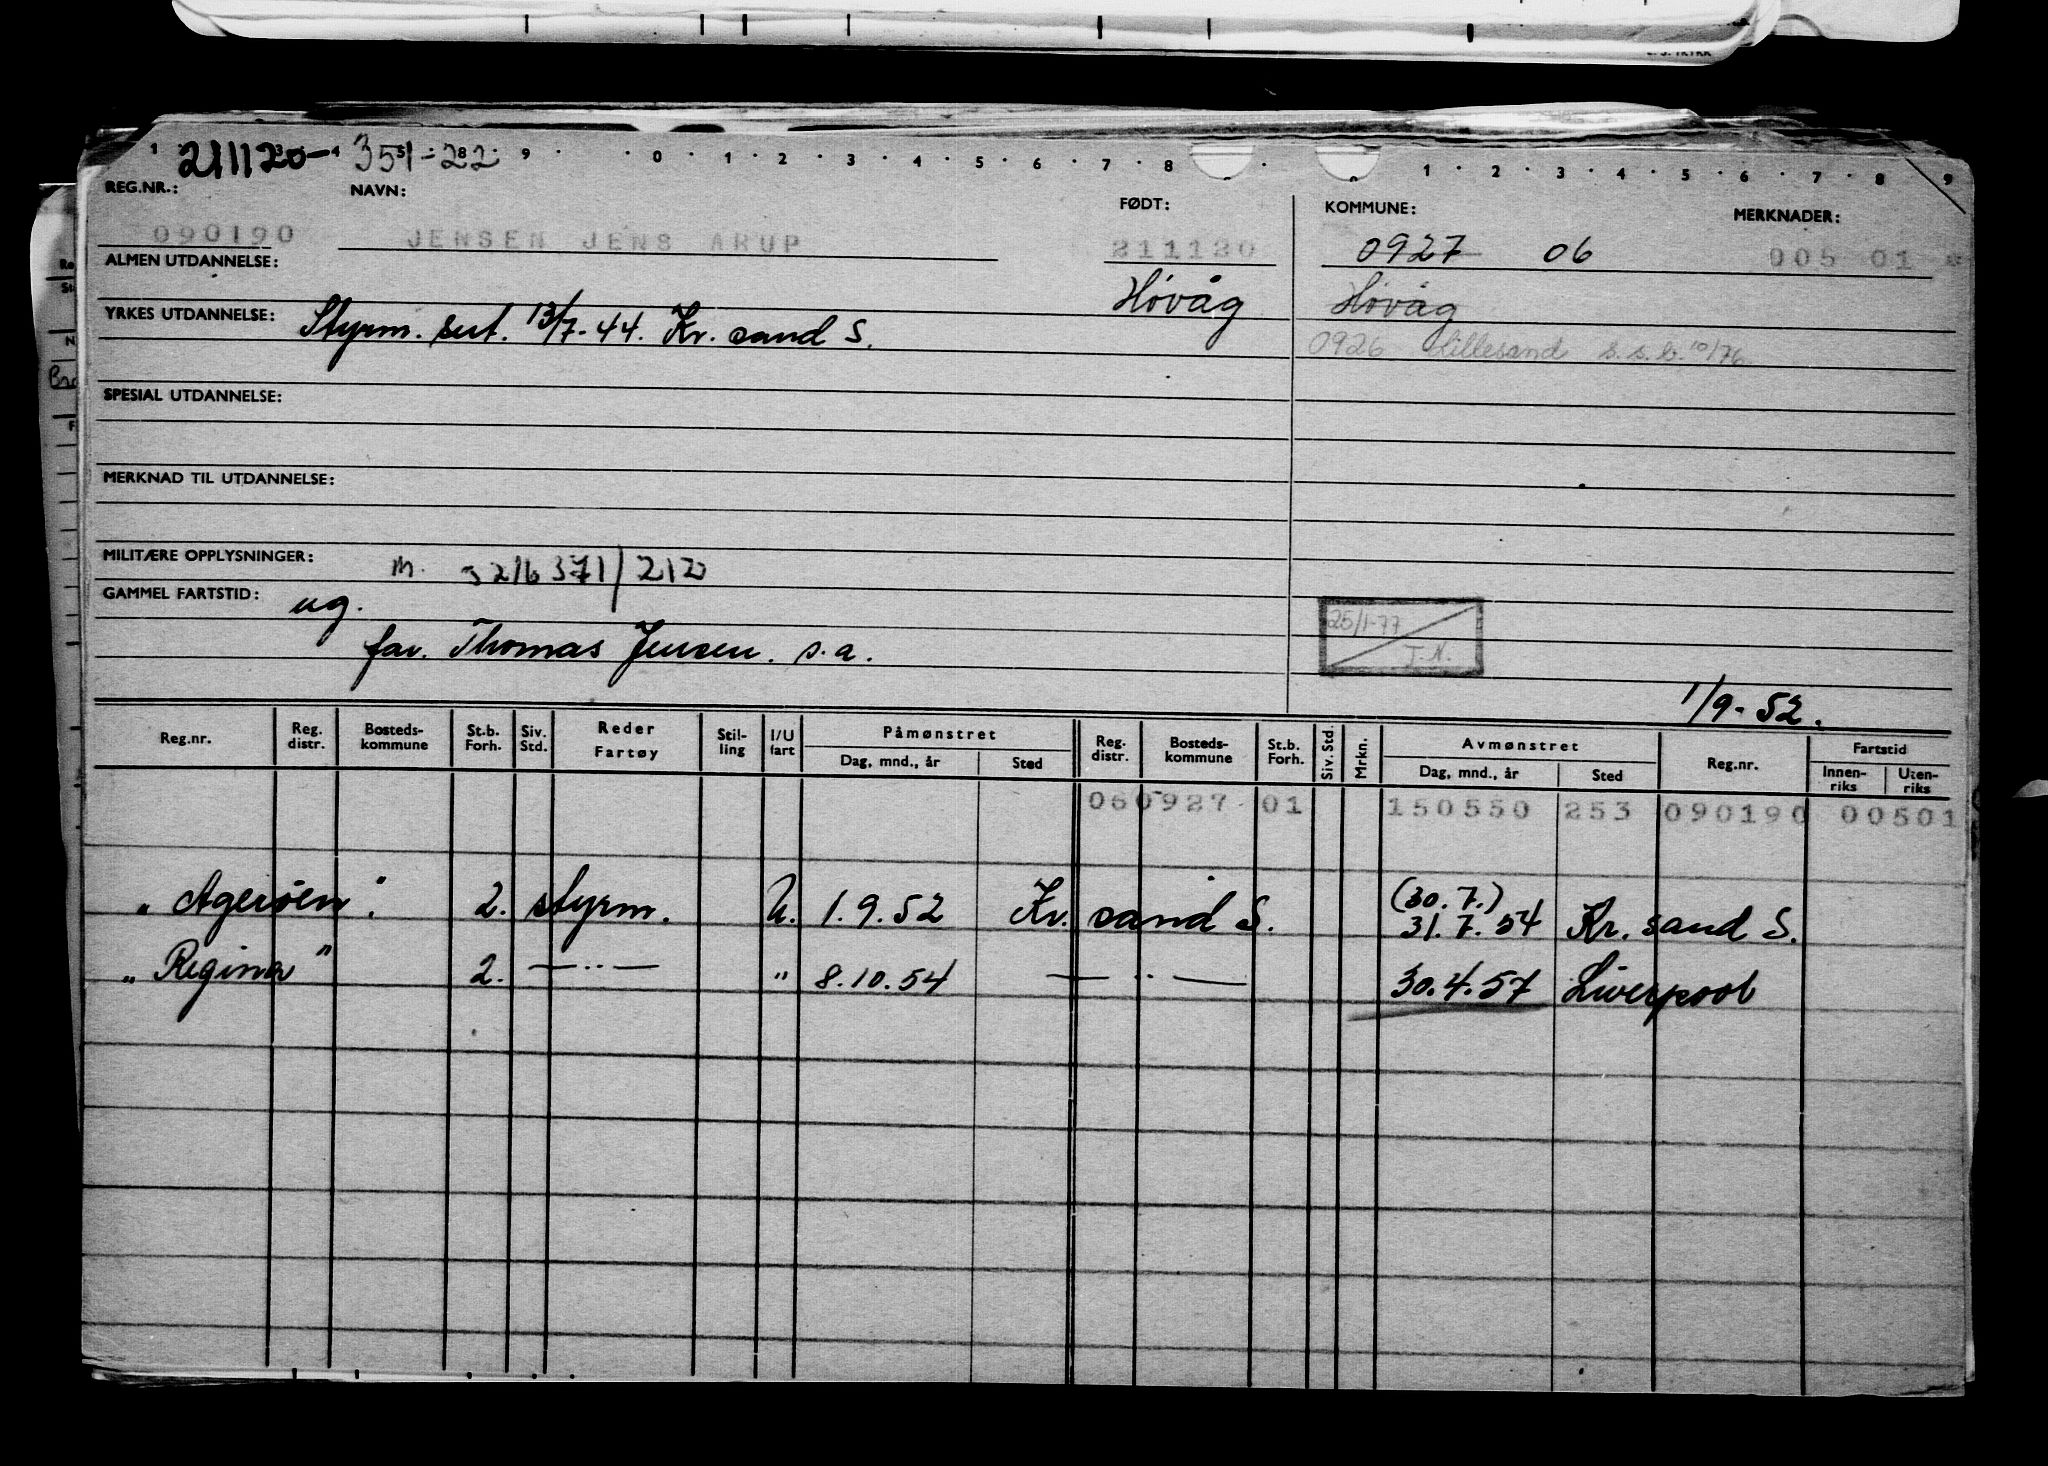 211120- 351-22
1 2 3 4 5 8 9 0 1 2 3 4 5 6 7 8 9 1 2 3 4 5 6 7 8 9
REG.NR.: NAVN: FØDT: KOMMUNE: MERKNADER:
090190 JENSEN JENS ARUP 211120 0927 06 005 01
ALMEN UTDANNELSE: Høvåg Høvåg
YRKES UTDANNELSE: Styrm. sert. 13/7-44. Kr. sand S.
0926 Lillesand s.s.b. 10/76
SPESIAL UTDANNELSE:
MERKNAD TIL UTDANNELSE:
MILITÆRE OPPLYSNINGER: m. 3216371/212
GAMMEL FARTSTID: ug.
25/1-77
far. Thomas Jensen. s.a.
J.N.
1/9-52.
Reg.nr. Reg. distr. Bosteds-kommune St.b. Forh. Siv. Std. Reder Fartøy Stil-ling I/U fart Påmønstret Dag, mnd., år Sted Reg. distr. Bosteds-kommune St.b. Forh. Siv. Std. Mrkn. Avmønstret Dag, mnd., år Sted Reg.nr. Fartstid Innen-riks Uten-riks
060927 01 150550 253 090190 00501
"Agerøen". 2. styrm. U. 1.9.52 Kr. sand S. (30.7.) 31.7.54 Kr. sand S.
"Regina" 2. —"— " 8.10.54 —"— 30.4.57 Liverpool